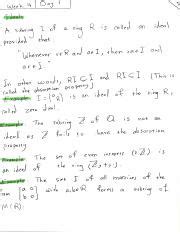 Week 4 Day 1
Ideals
A subring I of a ring R is called an ideal
provided that
"Whenever r∈R and a∈I, then ra∈I and
ar∈I."
In other words, RI⊆I and RI⊆I (This is
called the absorption property)
Example I={0_R} is an ideal of the ring R,
called zero ideal.
Example The subring Z of Q is not an
ideal as Z fails to have the absorption
property.
Example The set of even integers (2Z) is an
ideal of the ring (Z,+,·).
Example The set I of all matrices of the
form (a 0 b 0) with a,b∈R forms a subring of
M(R)